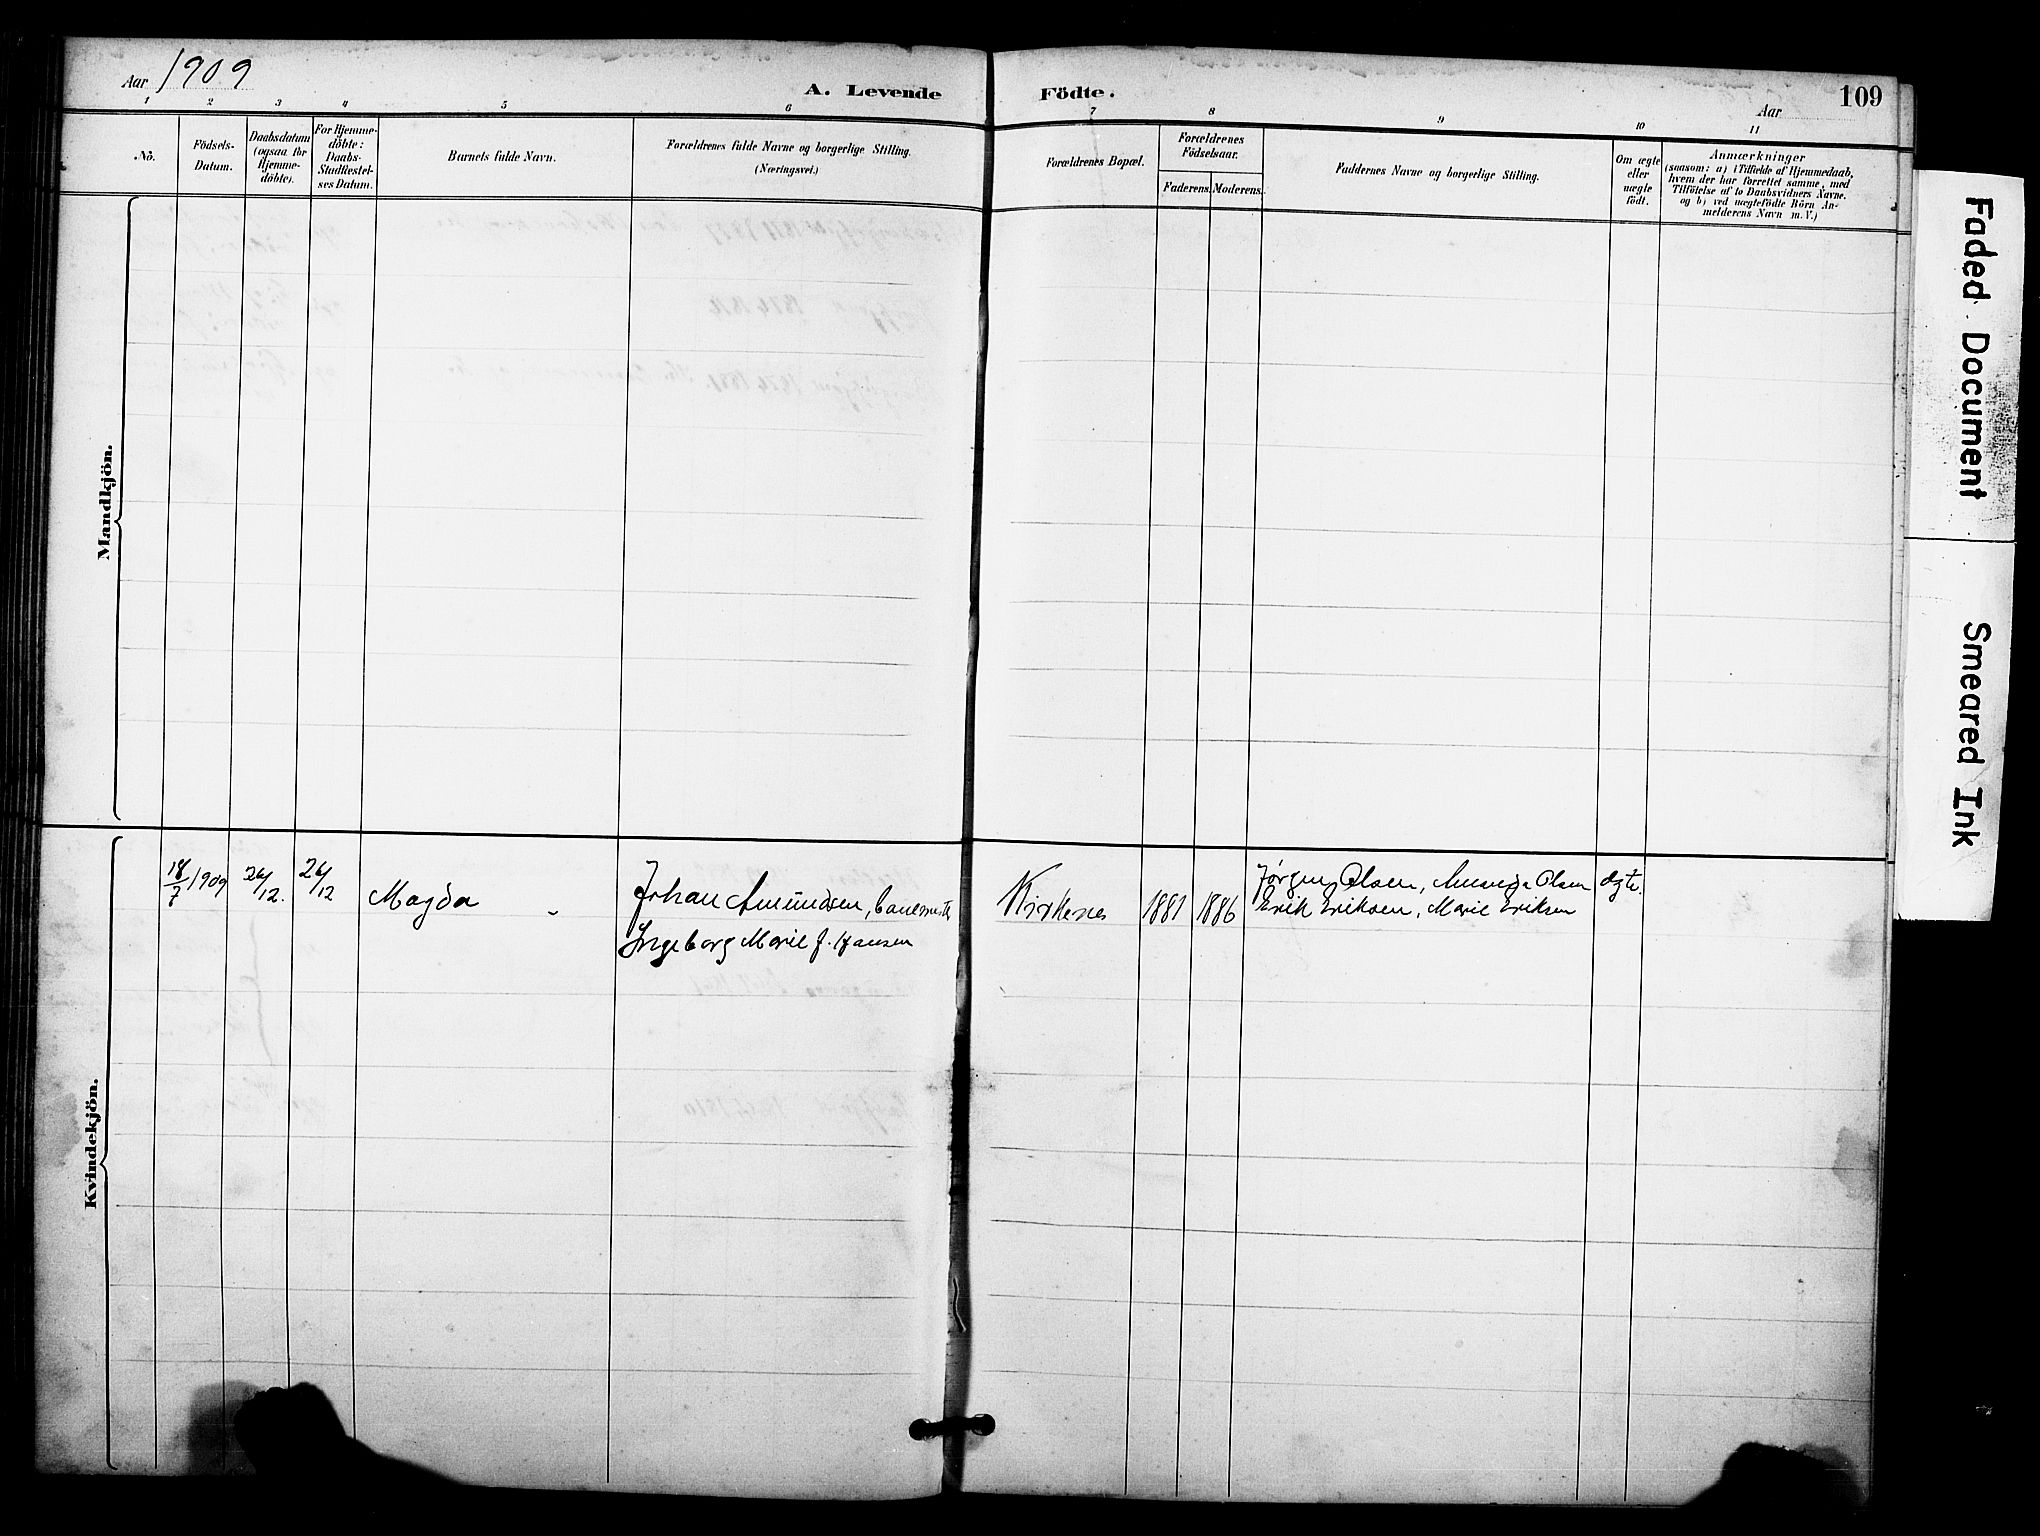 Aar 1909
A. Levende Födte.
Aar
109
1 2 3 4 5 6 7 8 9 10 11
No.
Födsels-
Datum.
Daabsdatum
(ogsaa for
Hjemme-
döbte).
For Hjemme-
döbte:
Daabs-
Stadfæstel-
ses Datum.
Barnets fulde Navn.
Forældrenes fulde Navne og borgerlige Stilling.
(Næringsvei.)
Forældrenes Bopæl.
Forældrenes
Födselsaar.
Faderens. Moderens.
Faddernes Navne og borgerlige Stilling.
Om ægte
eller
uægte
födt.
Anmærkninger
(saasom: a) i Tilfælde af Hjemmedaab,
hvem der har forrettet samme, med
Tilföielse af to Daabsvidners Navne.
og b) ved uægtefödte Börn An-
melderens Navn m. V.)
Mandkjön.
Kvindekjön.
18/7 1909
26/12.
26/12
Magda
Johan Amundsen,
Ingeborg Marie f. Hansen
Kirkenes
1881
1886
Jørgen Olsen, Olsen
Erik Eriksen, Marie Eriksen
ægte.
Faded Document
Smeared Ink